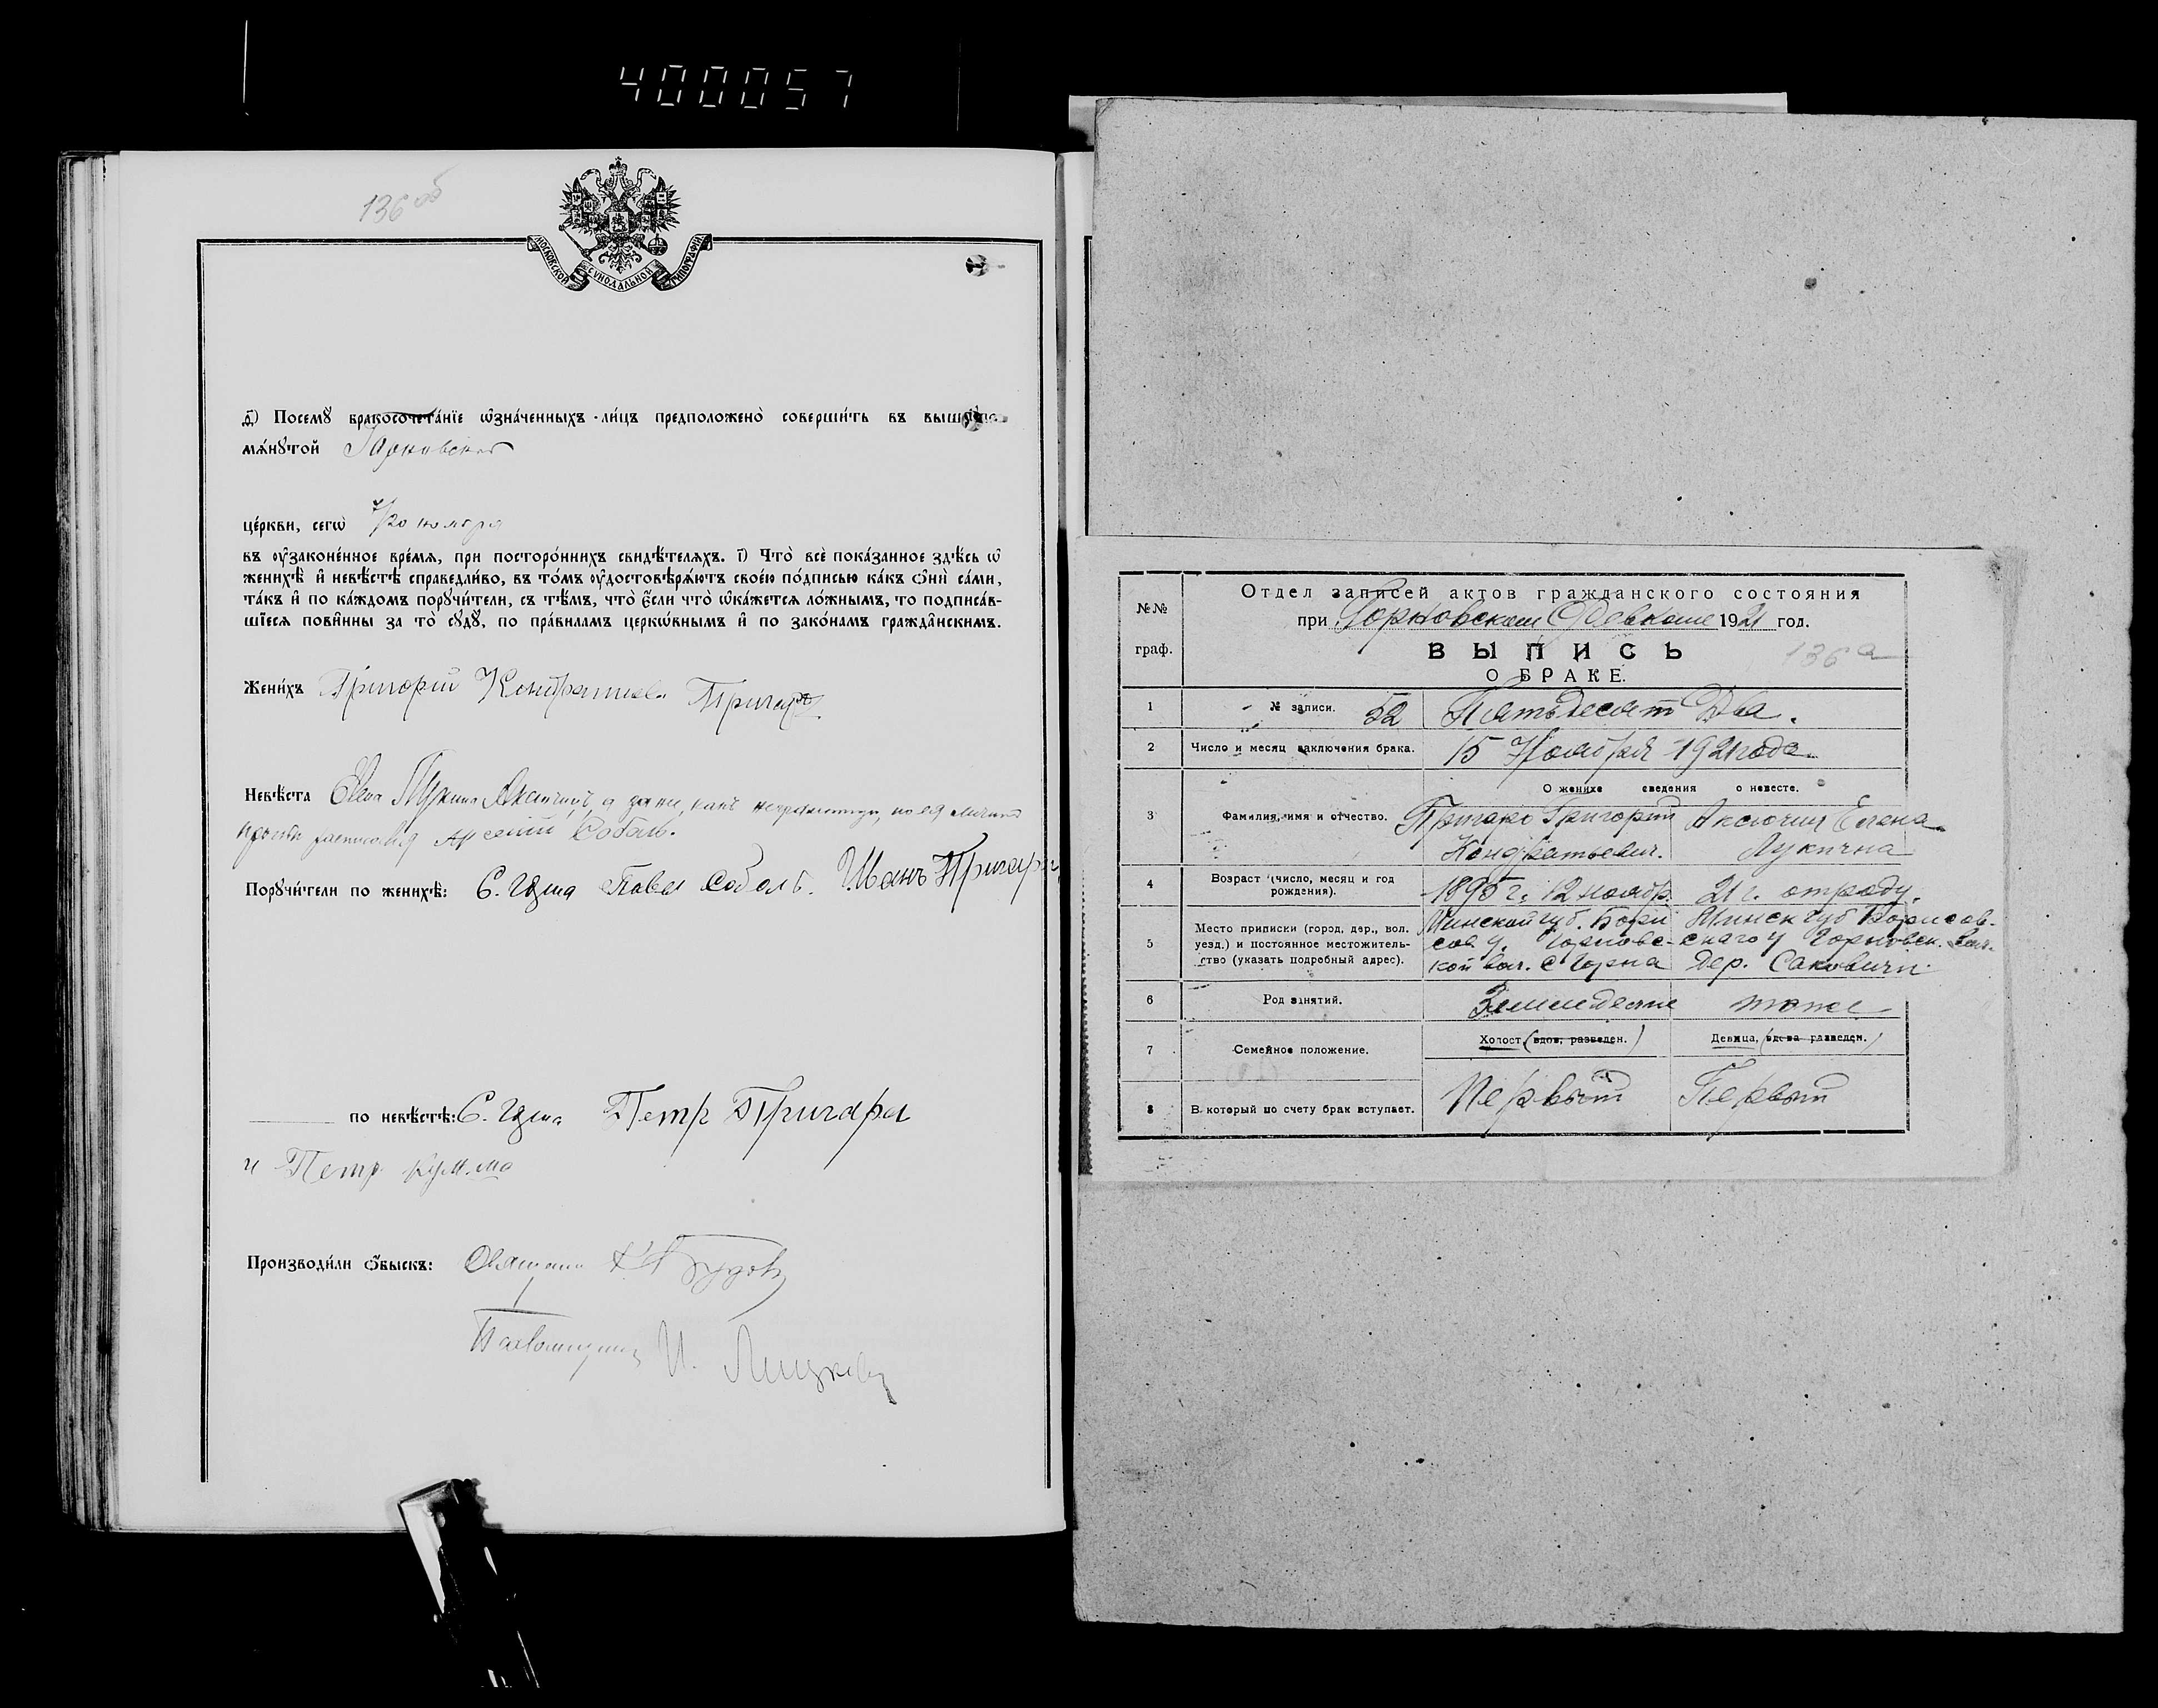 400057
136 об
МОСКОВСКОЙ СѴНОДАЛЬНОЙ ТИПОГРАФІИ
д҃) Посемꙋ̀ бракосочета́нїе ѡ҆зна́ченныхъ ли́цъ предположено̀ соверши́ть въ выш
мѧ́нꙋтой
це́ркви, сегѡ̀ 7/20 ноября
въ ᲂу҆зако́ненное вре́мѧ, при посторо́ннихъ свидѣ́телѧхъ. і҃) Что̀ всѐ пока́занное здѣ́сь ѡ҆
женихѣ̀ и҆ невѣ́стѣ справедли́во, въ то́мъ ᲂу҆достовѣрѧ́ютъ свое́ю по́дписью ка́къ ѻ҆нѝ са́ми,
та́къ и҆ по ка́ждомъ порꙋчи́тели, съ тѣ́мъ, что̀ є҆́сли что̀ ѡ҆ка́жетсѧ ло́жнымъ, то подписа́в-
шїесѧ пови́нны за то̀ сꙋдꙋ̀, по пра́виламъ церкѡ́внымъ и҆ по зако́намъ гражда̑нскимъ.
Жени́хъ Григорій Кондратьев Пригаро
Невѣ́ста Елена Лукина Аксючицъ, а за нее, какъ неграмотную, по ея личной
просьбе росписался Арсений Соболь.
Порꙋчи́тели по женихѣ̀: С. Гория Павел Соболь. Иванъ Пригара
по невѣ́стѣ: С. Гория Петр Пригара
и Петр
Производи́ли ѻ҆́быскъ: Священник
Псаломщик И.
№№ граф.
Отдел записей актов гражданского состояния
при Горновском 1921 год.
ВЫПИСЬ
136 а
О БРАКЕ.
1 № записи. 52 Пятьдесят Два.
2 Число и месяц заключения брака. 15 Ноября 1921 года.
О женихе сведения о невесте.
3 Фамилия, имя и отчество. Пригаро Григорий Аксючиц Елена
Кондратьевич. Лукична
4 Возраст (число, месяц и год рождения). 1895 г. 12 ноябр. 21 г. отроду.
5 Место приписки (город, дер., вол. Минской губ. Бори Минск губ Борисов-
уезд.) и постоянное местожитель- сов у. Горновс- скаго у Горновск. вол.
ство (указать подробный адрес). кой вол. с Горна Дер. Саковичи
6 Род занятий. Земледелие тоже
7 Семейное положение. Холост, (вдов, разведен.) Девица, (вдова разведен.)
8 В который по счету брак вступает. Первый Первый